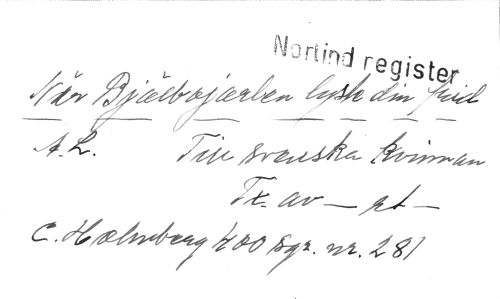 Nortind register
När Bjälbojarlen lyste din frid
A.L. Till svenska kvinnan
Tx. av — rt —
C. Holmberg 400 sgr. nr. 281